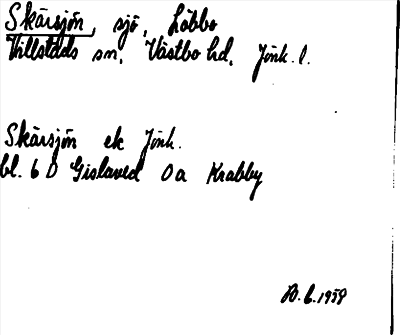 Skärsjön, sjö, Löbbo
Villstads sn. Västbo hd. Jönk. l.
Skärsjön ek Jönk.
bl. 6 D Gislaved 0a Krabby
B. L. 1959